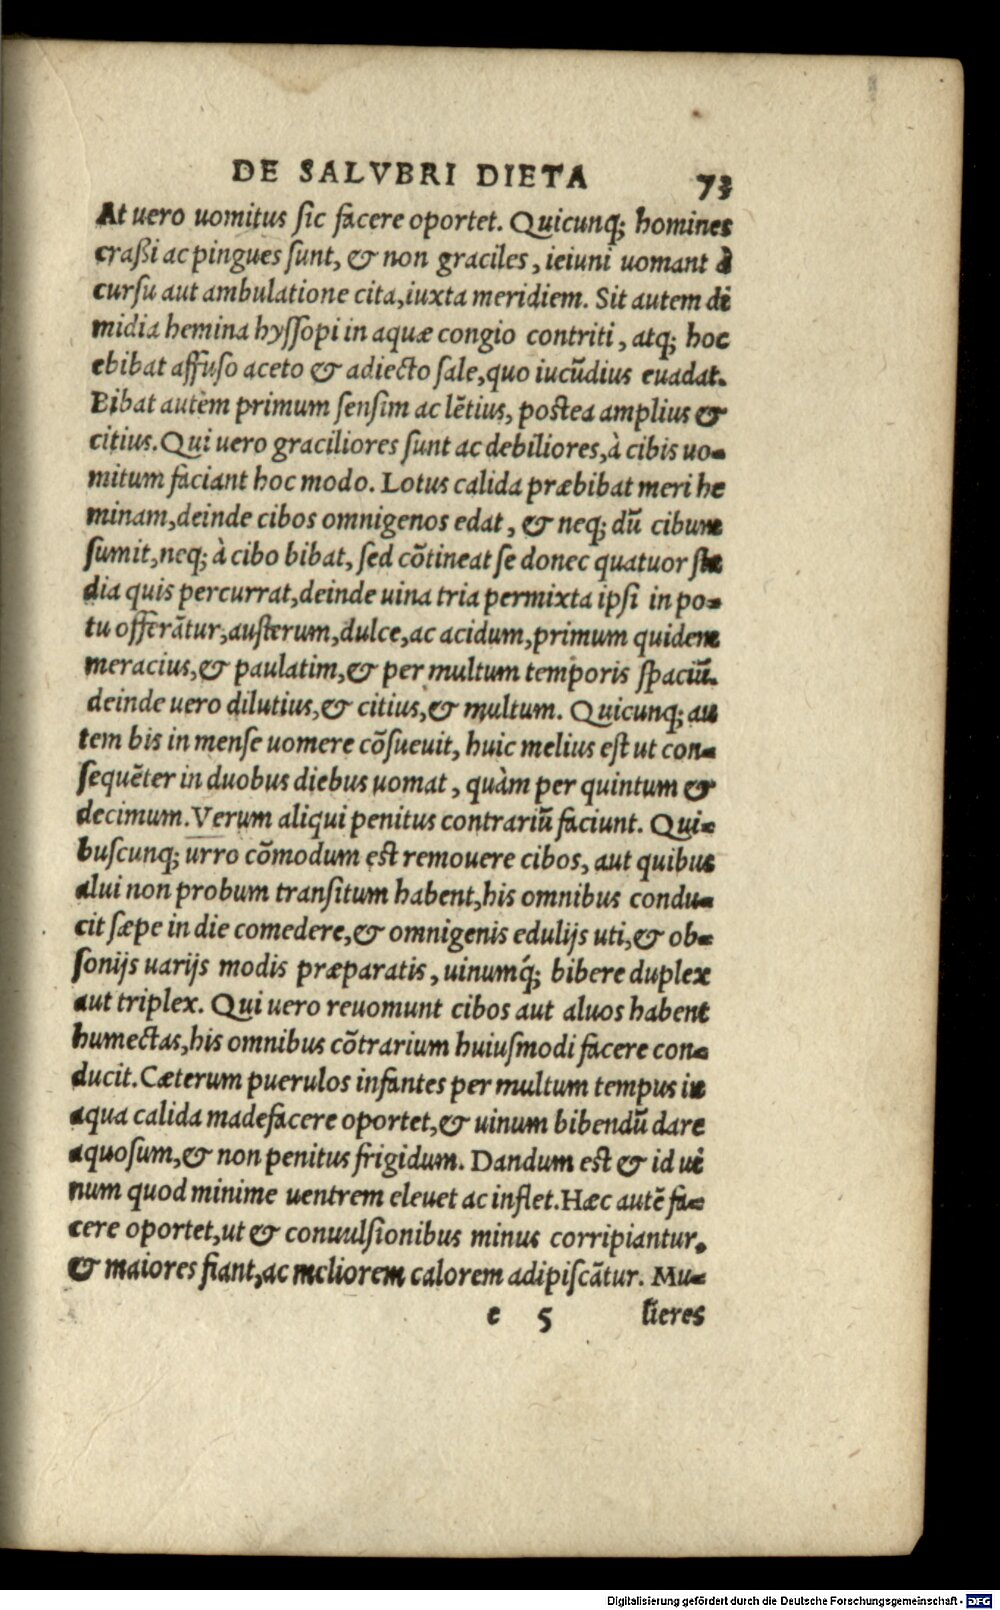 DE SALVBRI DIETA 73
At uero uomitus sic facere oportet. Quicunq; homines
craßi ac pingues sunt, & non graciles, ieiuni uomant à
cursu aut ambulatione cita, iuxta meridiem. Sit autem di
midia hemina hyssopi in aquæ congio contriti, atq; hoc
ebibat affuso aceto & adiecto sale, quo iucũdius euadat.
Bibat autem primum sensim ac lẽtius, postea amplius &
citius. Qui uero graciliores sunt ac debiliores, à cibis uo-
mitum faciant hoc modo. Lotus calida præbibat meri he
minam, deinde cibos omnigenos edat, & neq; dũ cibum
sumit, neq; à cibo bibat, sed cõtineat se donec quatuor sta
dia quis percurrat, deinde uina tria permixta ipsi in po-
tu offerãtur, austerum, dulce, ac acidum, primum quidem
meracius, & paulatim, & per multum temporis spaciũ.
deinde uero dilutius, & citius, & multum. Quicunq; au
tem bis in mense uomere cõsueuit, huic melius est ut con-
sequẽter in duobus diebus uomat, quàm per quintum &
decimum. Verum aliqui penitus contrariũ faciunt. Qui-
buscunq; urro cõmodum est remouere cibos, aut quibus
alui non probum transitum habent, his omnibus condu-
cit sæpe in die comedere, & omnigenis edulijs uti, & ob-
sonijs uarijs modis præparatis, uinumq́; bibere duplex
aut triplex. Qui uero reuomunt cibos aut aluos habent
humectas, his omnibus cõtrarium huiusmodi facere con-
ducit. Cæterum puerulos infantes per multum tempus in
aqua calida madefacere oportet, & uinum bibendũ dare
aquosum, & non penitus frigidum. Dandum est & id ui
num quod minime uentrem eleuet ac inflet. Hæc autẽ fa-
cere oportet, ut & conuulsionibus minus corripiantur.
& maiores fiant, ac meliorem calorem adipiscãtur. Mu-
e 5 lieres
Digitalisierung gefördert durch die Deutsche Forschungsgemeinschaft - DFG